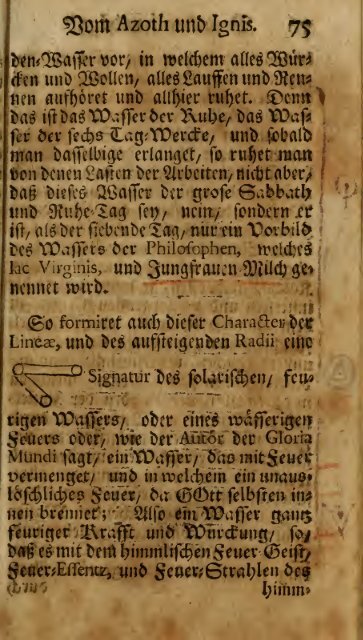 Vom Azoth und Ignis. 75
den-Wasser vor, in welchem alles Wür-
cken und Wollen, alles Lauffen und Ren-
nen aufhöret und allhier ruhet. Denn
das ist das Wasser der Ruhe, das Was-
ser der sechs Tag-Wercke, und sobald
man dasselbige erlanget, so ruhet man
von denen Lasten der Arbeiten, nicht aber,
daß dieses Wasser der grose Sabbath
und Ruhe-Tag sey, nein, sondern er
ist, als der siebende Tag, nur ein Vorbild
des Wassers der Philosophen, welches
lac Virginis, und Jungfrauen-Milch ge-
nennet wird.
So formiret auch dieser Character der
Lineæ, und des aufsteigenden Radii eine
Signatur des solarischen, feu-
rigen Wassers, oder eines wässerigen
Feuers oder, wie der Autor der Gloria
Mundi sagt, ein Wasser, das mit Feuer
vermenget, und in welchem ein unaus-
löschliches Feuer, da GOtt selbsten in-
nen brennet; Also ein Wasser gantz
feuriger Krafft und Würckung, so,
daß es mit dem himmlischen Feuer-Geist,
Feuer-Essentz, und Feuer-Strahlen des
himm-